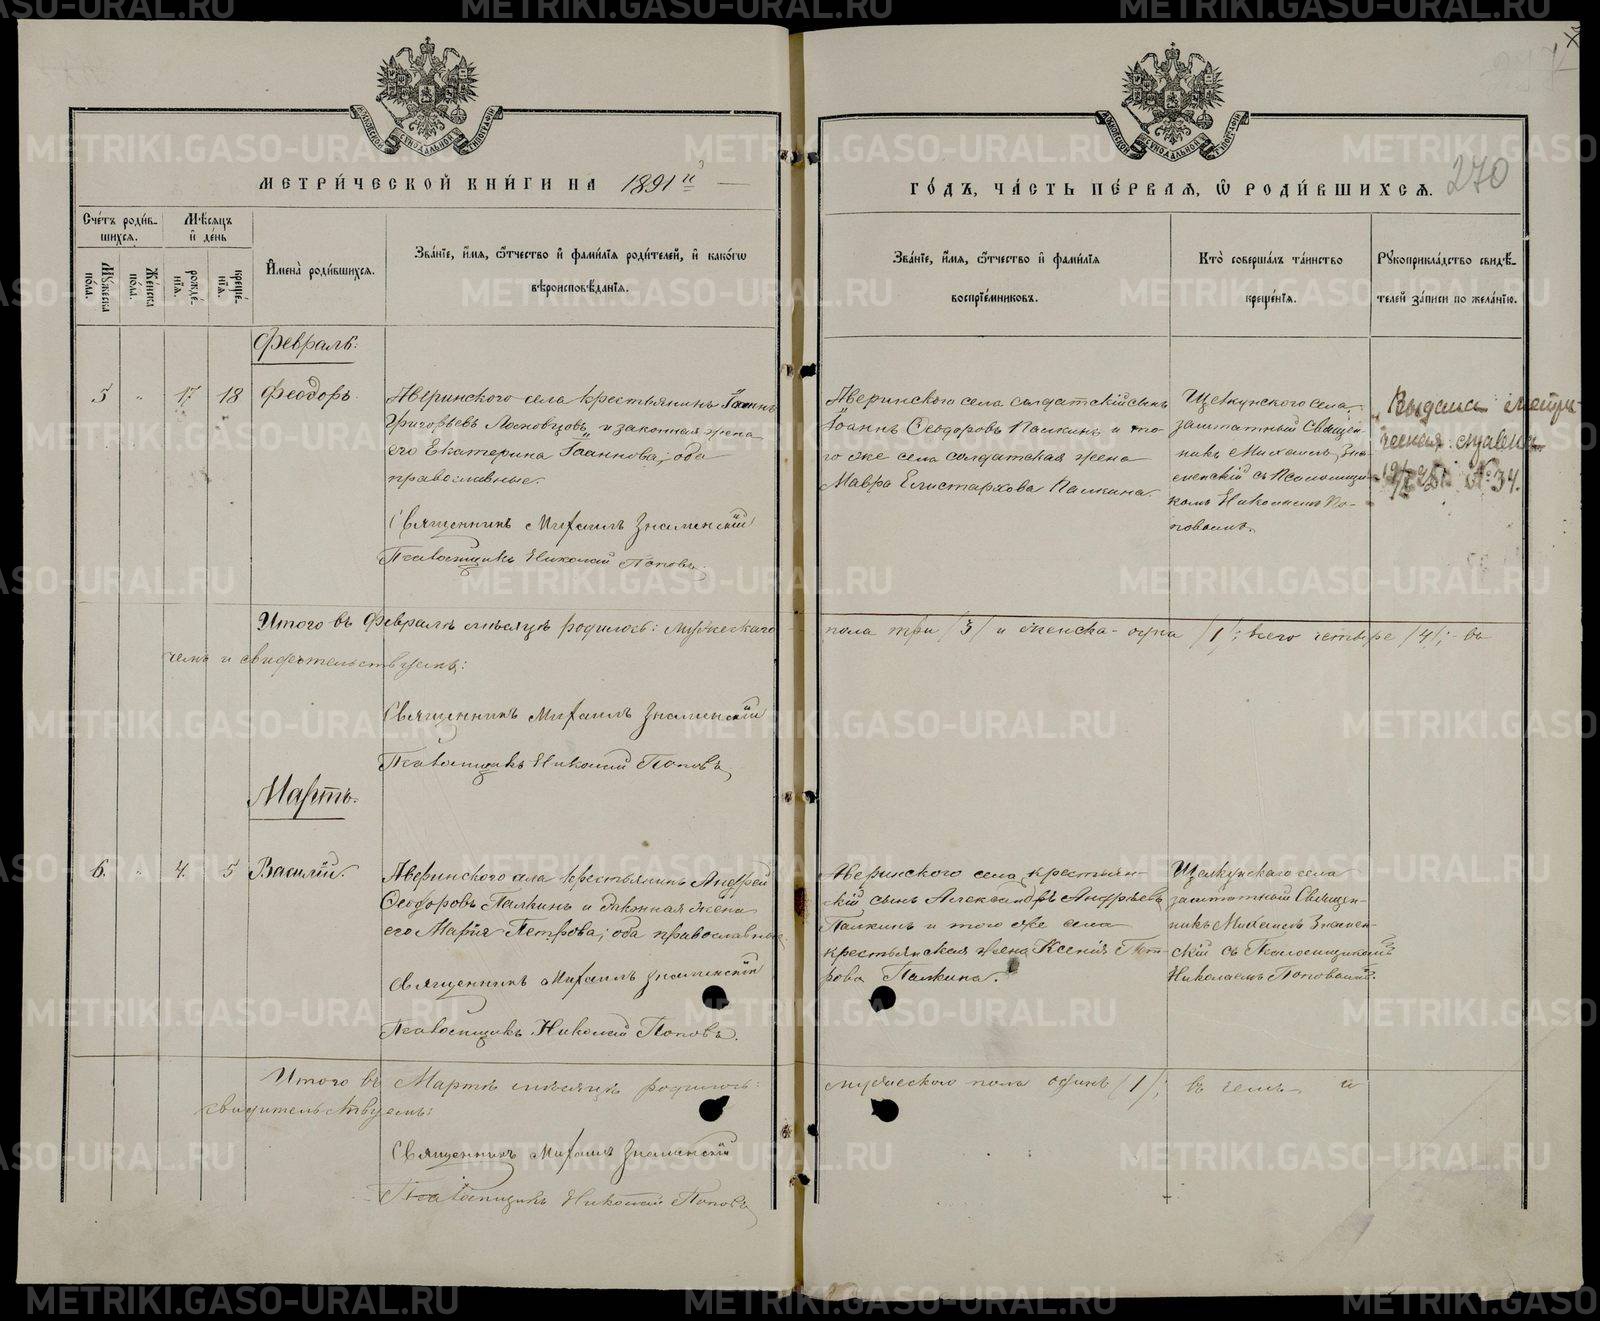 ДУХОВСКОЙ СѴНОДАЛЬНОЙ ТИПОГРАФІИ
ДУХОВСКОЙ СѴНОДАЛЬНОЙ ТИПОГРАФІИ
МЕТРИ́ЧЕСКОЙ КНИ́ГИ НА 1891 й
ГО́ДЪ, ЧА́СТЬ ПЕ́РВАЯ, Ѡ РОДИ́ВШИХСЯ.
270
Сче́тъ роди́в-
шихся.
Мѣсяцъ
и де́нь
Му́жеска по́ла.
Же́нска по́ла.
рожде́-
нїя.
креще́-
нїя.
Имена̀ роди́вшихся.
Зва́нїе, и́мя, ѻ́тчество и фами́лїя роди́телей, и како́гѡ
вѣроисповѣ́данїя.
Зва́нїе, и́мя, ѻ́тчество и фами́лїя
воспрїе́мниковъ.
Кто̀ соверша́лъ та́инство
креще́нїя.
Рукоприкла́дство свидѣ́-
телей за́писи по жела́нїю.
Февраль:
5 " 17 18 Феодоръ.
Аверинскаго села крестьянинъ Іоаннъ
Григорьевъ и законная жена
его Екатерина Іоаннова; оба
православные.
Священникъ Михаилъ Знаменскій
Псаломщикъ Николай Поповъ.
Аверинскаго села солдатскій сынъ
Іоаннъ Ѳеодоровъ Палкинъ и то-
го же села солдатская жена
Мавра Елистархова Палкина.
Щелкунскаго села
заштатный Священ-
никъ Михаилъ Зна-
менскій съ Псаломщи-
комъ Николаемъ По-
повымъ.
Выдана метри-
ческая
№ 34.
Итого въ Февралѣ мѣсяцѣ родилось: мужескаго
пола три /3/ и женска - одна /1/; всего четыре /4/; - въ
чемъ и свидѣтельствуемъ:
Священникъ Михаилъ Знаменскій
Псаломщикъ Николай Поповъ
Мартъ.
6. " 4. 5 Василій.
Аверинскаго села крестьянинъ Андрей
Ѳеодоровъ Палкинъ и законная жена
его Марія Петрова; оба православные.
Священникъ Михаилъ Знаменскій
Псаломщикъ Николай Поповъ.
Аверинскаго села крестьян-
скій сынъ Александръ Андреевъ
Палкинъ и того же села
крестьянская жена Ксенія Пет-
рова Палкина.
Щелкунскаго села
заштатный Священ-
никъ Михаилъ Знамен-
скій съ Псаломщикомъ
Николаемъ Поповымъ.
Итого въ Мартѣ мѣсяцѣ родилось:
мужескаго пола одинъ /1/; въ чемъ и
свидѣтельствуемъ:
Священникъ Михаилъ Знаменскій
Псаломщикъ Николай Поповъ
METRIKI.GASO-URAL.RU